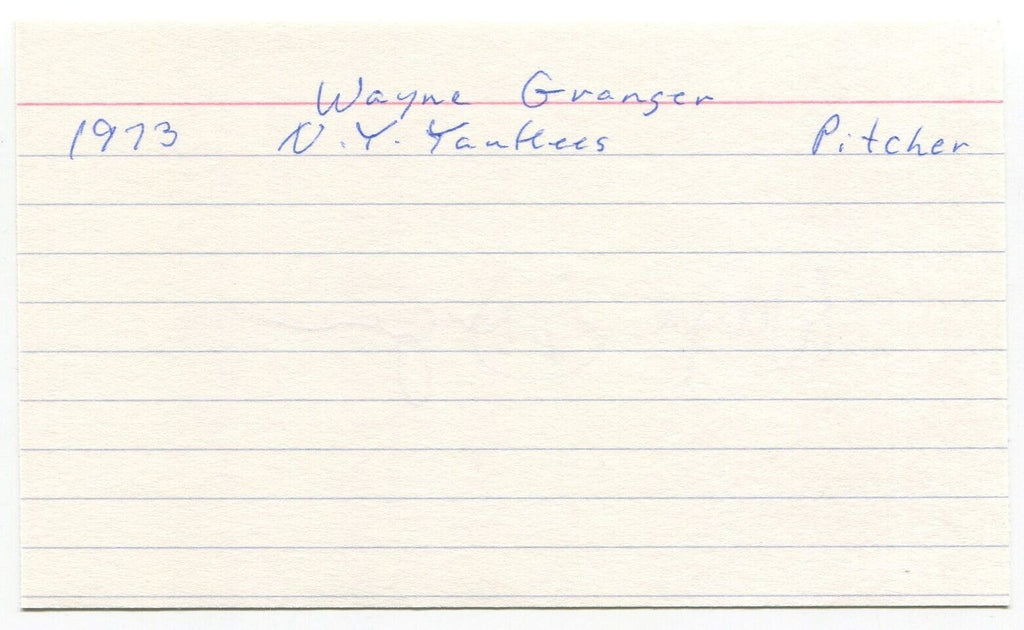 Wayne Granger
1973 N.Y. Yankees Pitcher